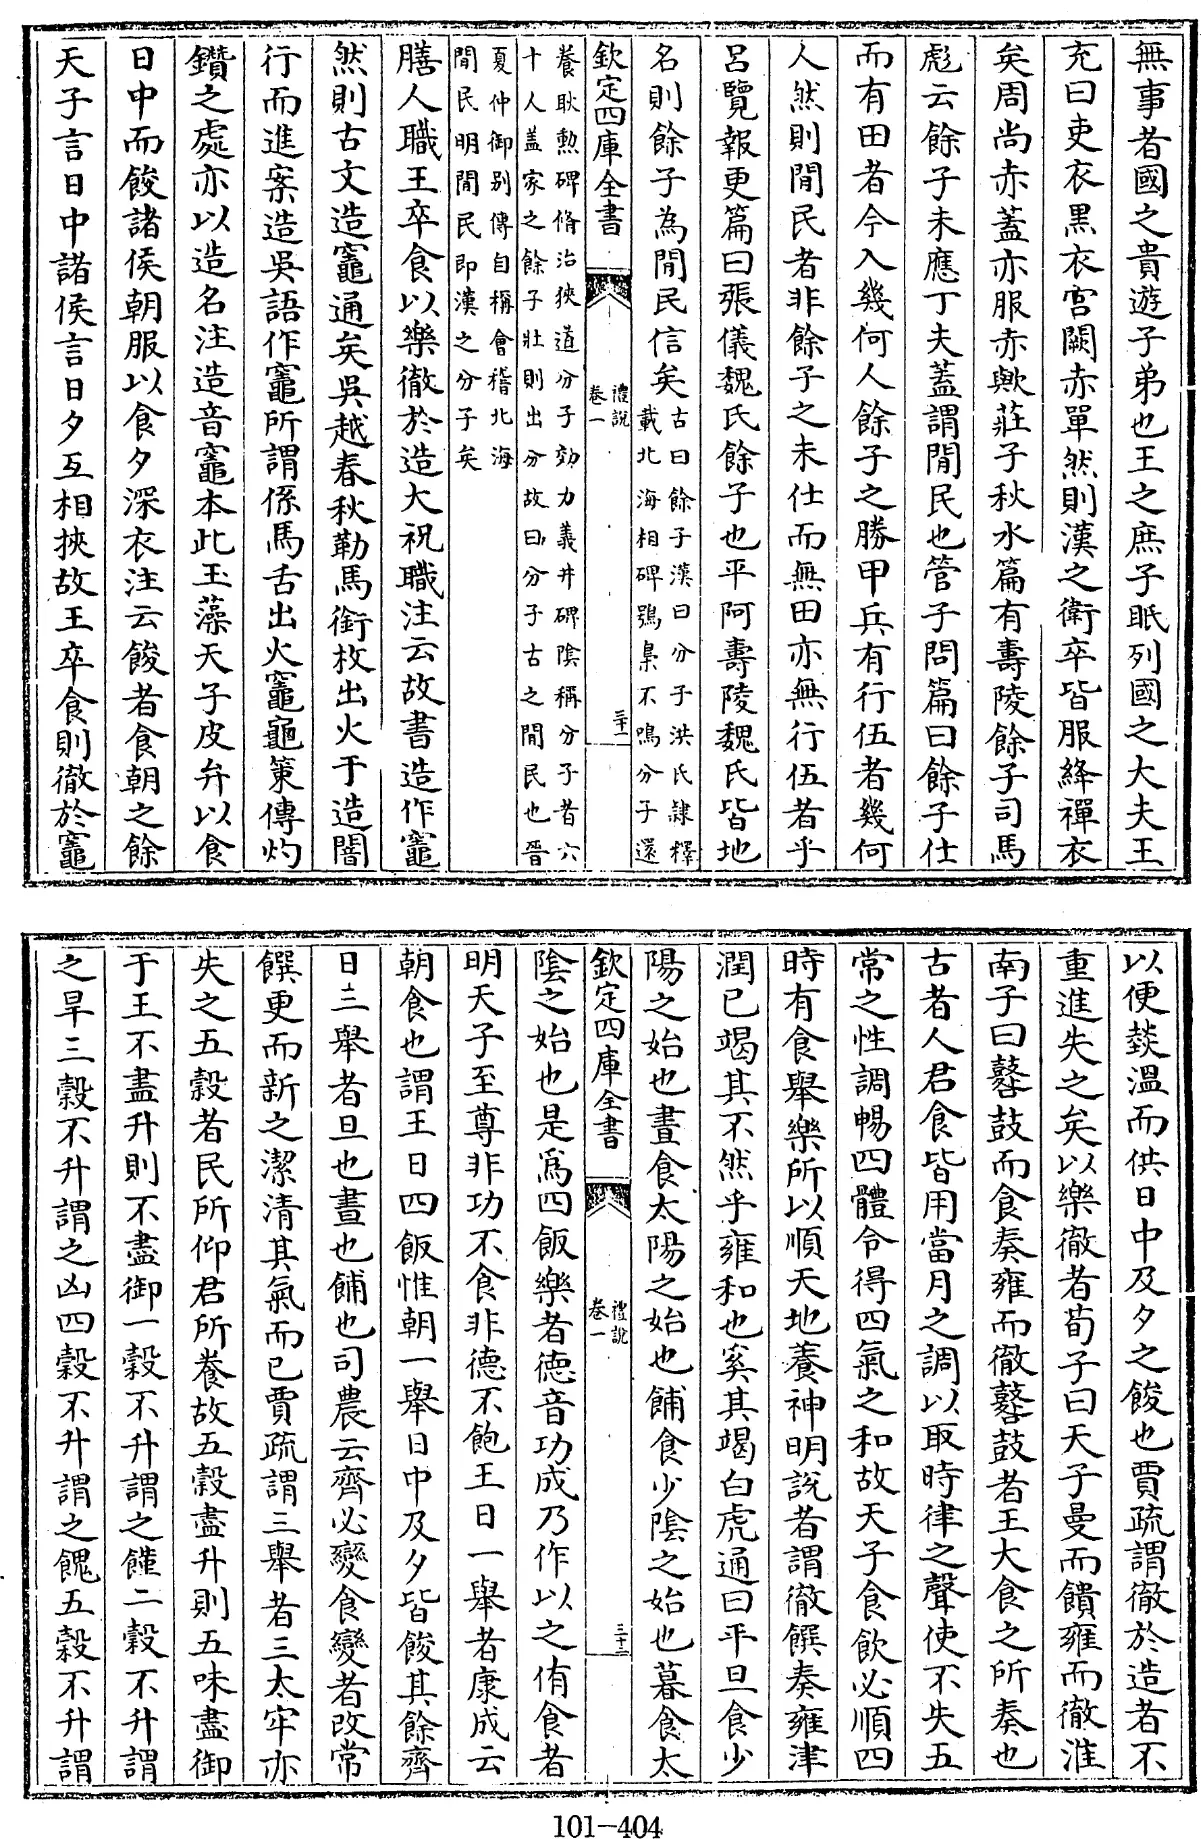 無事者國之貴遊子弟也王之庶子眂列國之大夫王
充曰吏衣黑衣宫闕赤單然則漢之衛卒皆服絳襌衣
矣周尚赤蓋亦服赤歟莊子秋水篇有壽陵餘子司馬
彪云餘子未應丁夫蓋謂閒民也管子問篇曰餘子仕
而有田者今入幾何人餘子之勝甲兵有行伍者幾何
人然則閒民者非餘子之未仕而無田亦無行伍者乎
呂覽報更篇曰張儀魏氏餘子也平阿壽陵魏氏皆地
名則餘子為閒民信矣
古曰餘子漢曰分子洪氏隷釋
載北海相碑鴞梟不鳴分子還
欽定四庫全書
禮說
卷一
三十一
養耿勲碑脩治狹道分子効力義井碑陰稱分子者六
十人盖家之餘子壯則出分故曰分子古之閒民也晉
夏仲御别傳自稱會稽北海
閒民明閒民即漢之分子矣
膳人職王卒食以樂徹於造大祝職注云故書造作竈
然則古文造竈通矣吳越春秋勒馬銜枚出火于造闇
行而進案造吳語作竈所謂係馬舌出火竈龜策傳灼
鑽之處亦以造名注造音竈本此玉藻天子皮弁以食
日中而餕諸侯朝服以食夕深衣注云餕者食朝之餘
天子言日中諸侯言日夕互相挾故王卒食則徹於竈
以便燅溫而供日中及夕之餕也賈疏謂徹於造者不
重進失之矣以樂徹者荀子曰天子曼而饋雍而徹淮
南子曰鼛鼓而食奏雍而徹鼛鼓者王大食之所奏也
古者人君食皆用當月之調以取時律之聲使不失五
常之性調暢四體令得四氣之和故天子食飲必順四
時有食舉樂所以順天地養神明說者謂徹饌奏雍津
潤已竭其不然乎雍和也奚其竭白虎通曰平旦食少
陽之始也晝食太陽之始也餔食少陰之始也暮食太
欽定四庫全書
禮說
卷一
三十二
陰之始也是爲四飯樂者德音功成乃作以之侑食者
明天子至尊非功不食非德不飽王日一舉者康成云
朝食也謂王日四飯惟朝一舉日中及夕皆餕其餘齊
日三舉者旦也晝也餔也司農云齊必變食變者改常
饌更而新之潔清其氣而已賈疏謂三舉者三太牢亦
失之五穀者民所仰君所養故五穀盡升則五味盡御
于王不盡升則不盡御一穀不升謂之饉二穀不升謂
之旱三穀不升謂之凶四穀不升謂之餽五穀不升謂
101-404